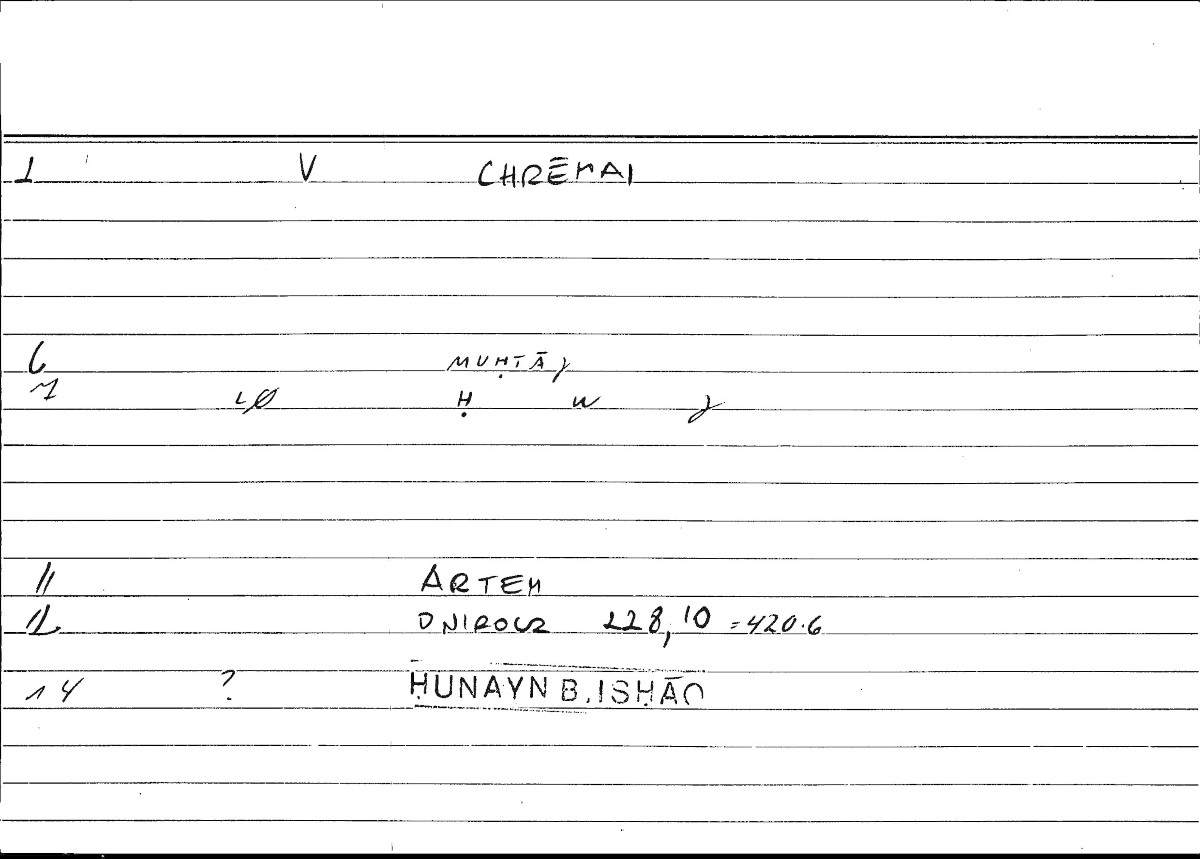 1 V CHRĒMAI
6 MUḤTĀJ
7 10 Ḥ W J
11 ARTEM
12 ONIROCR 228,10 = 420.6
14 ? ḤUNAYN B. ISḤĀQ